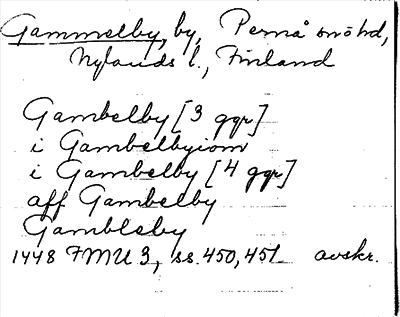 Gammelby, by, Pernå snöhd,
Nylands l., Finland
Gambelby [3 ggr]
i Gambelbyiom
i Gambelby [4 ggr]
aff Gambelby
Gambleby
1448 FMU 3, ss. 450, 451 avskr.